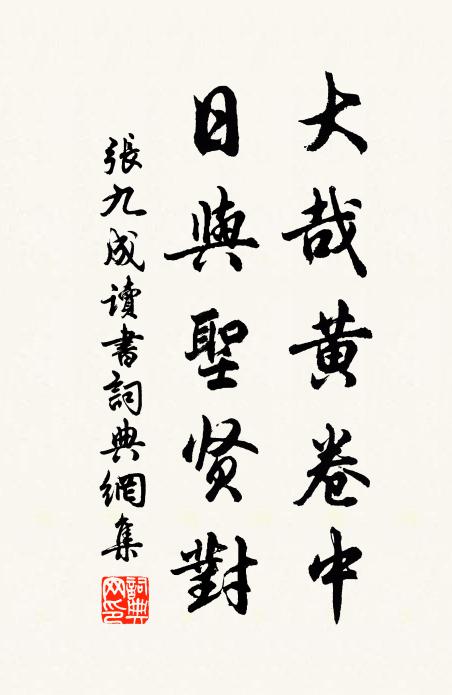 大哉黄卷中
日與聖贤對
張九成讀書詞典網集
詞典
网印